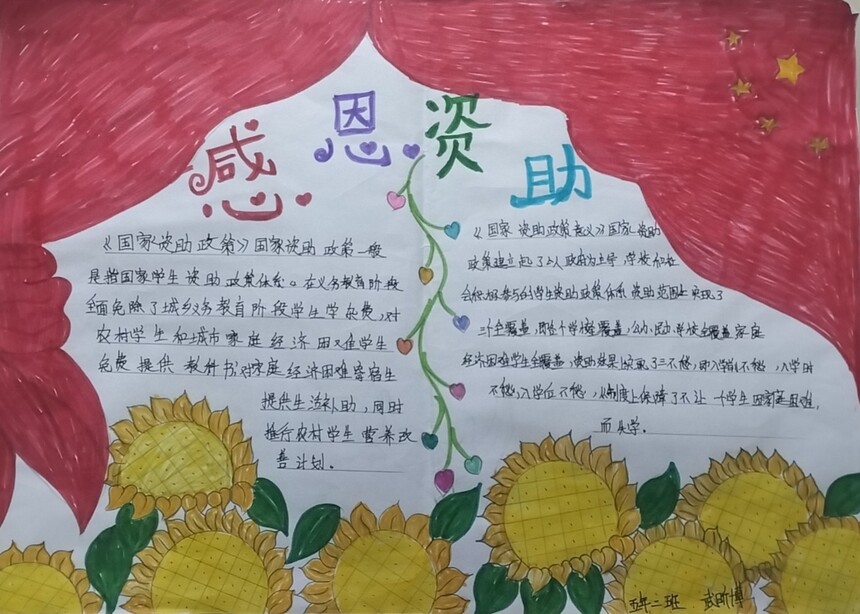 感恩资助
《国家资助政策》国家资助政策一般
是指国家学生资助政策体系。在义务教育阶段
全面免除了城乡义务教育阶段学生学杂费,对
农村学生和城市家庭经济困难学生
免费提供教科书,对家庭经济困难寄宿生
提供生活补助,同时
推行农村学生营养改
善计划。
《国家资助政策意义》国家资助
政策建立起了以政府为主导,学校和社
会积极参与的学生资助政策体系,资助范围上实现了
三个全覆盖,即各个学校全覆盖,公办民办学校全覆盖家庭
经济困难学生全覆盖,资助效果上实现了三不愁,即入学前不愁,入学时
不愁,入学后不愁,从制度上保障了不让一个学生因家庭困难,
而失学。
五年二班 武昕博